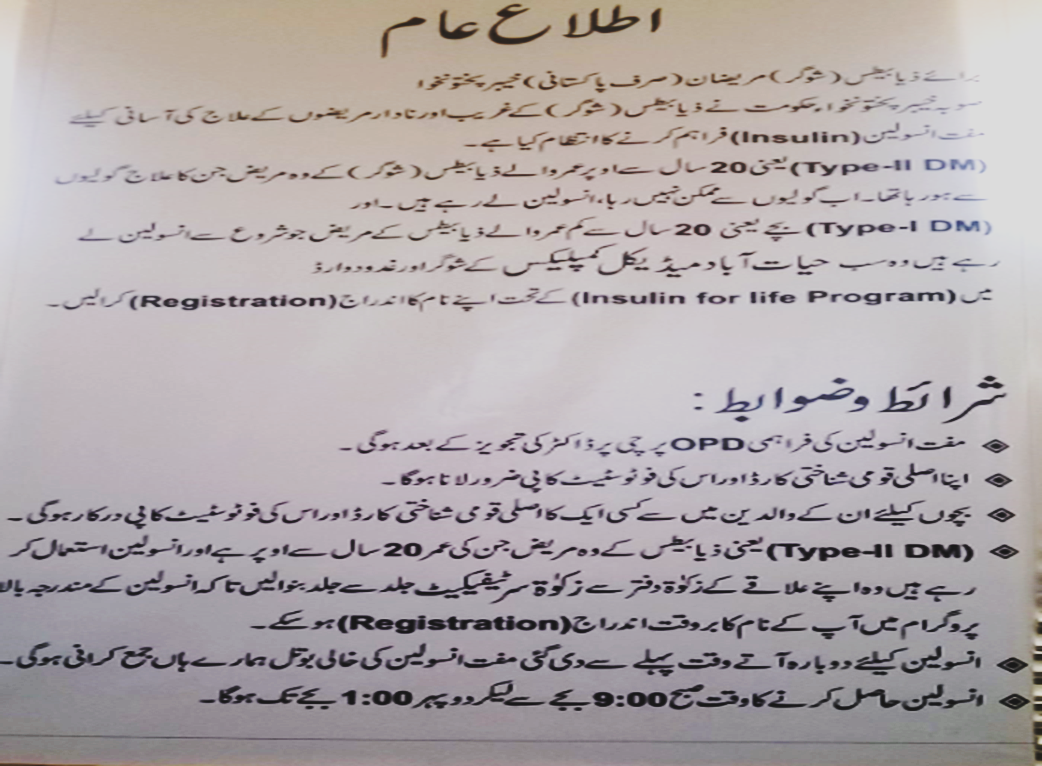 اطلاع عام
برائے ذیابیطس (شوگر) مریضان (صرف پاکستانی) خیبر پختونخوا
صوبہ خیبر پختونخواہ حکومت نے ذیابیطس (شوگر) کے غریب اور نادار مریضوں کے علاج کی آسانی کیلئے
مفت انسولین (Insulin) فراہم کرنے کا انتظام کیا ہے۔
(Type-II DM) یعنی 20 سال سے اوپر عمر والے ذیابیطس (شوگر) کے وہ مریض جن کا علاج گولیوں
سے ہو رہا تھا۔ اب گولیوں سے ممکن نہیں رہا، انسولین لے رہے ہیں۔ اور
(Type-I DM) بچے یعنی 20 سال سے کم عمر والے ذیابیطس کے مریض جو شروع سے انسولین لے
رہے ہیں وہ سب حیات آباد میڈیکل کمپلیکس کے شوگر اور غدود وارڈ
میں (Insulin for life Program) کے تحت اپنے نام کا اندراج (Registration) کرالیں۔
شرائط و ضوابط:
مفت انسولین کی فراہمی OPD پرچی پر ڈاکٹر کی تجویز کے بعد ہوگی۔
اپنا اصلی قومی شناختی کارڈ اور اس کی فوٹوسٹیٹ کاپی ضرور لانا ہوگا۔
بچوں کیلئے ان کے والدین میں سے کسی ایک کا اصلی قومی شناختی کارڈ اور اس کی فوٹوسٹیٹ کاپی درکار ہوگی۔
(Type-II DM) یعنی ذیابیطس کے وہ مریض جن کی عمر 20 سال سے اوپر ہے اور انسولین استعمال کر
رہے ہیں وہ اپنے علاقے کے زکوٰۃ دفتر سے زکوٰۃ سرٹیفیکیٹ جلد سے جلد بنوالیں تاکہ انسولین کے مندرجہ بالا
پروگرام میں آپ کے نام کا بروقت اندراج (Registration) ہوسکے۔
انسولین کیلئے دوبارہ آتے وقت پہلے سے دی گئی مفت انسولین کی خالی بوتل ہمارے ہاں جمع کرانی ہوگی۔
انسولین حاصل کرنے کا وقت صبح 9:00 بجے سے لیکر دوپہر 1:00 بجے تک ہوگا۔